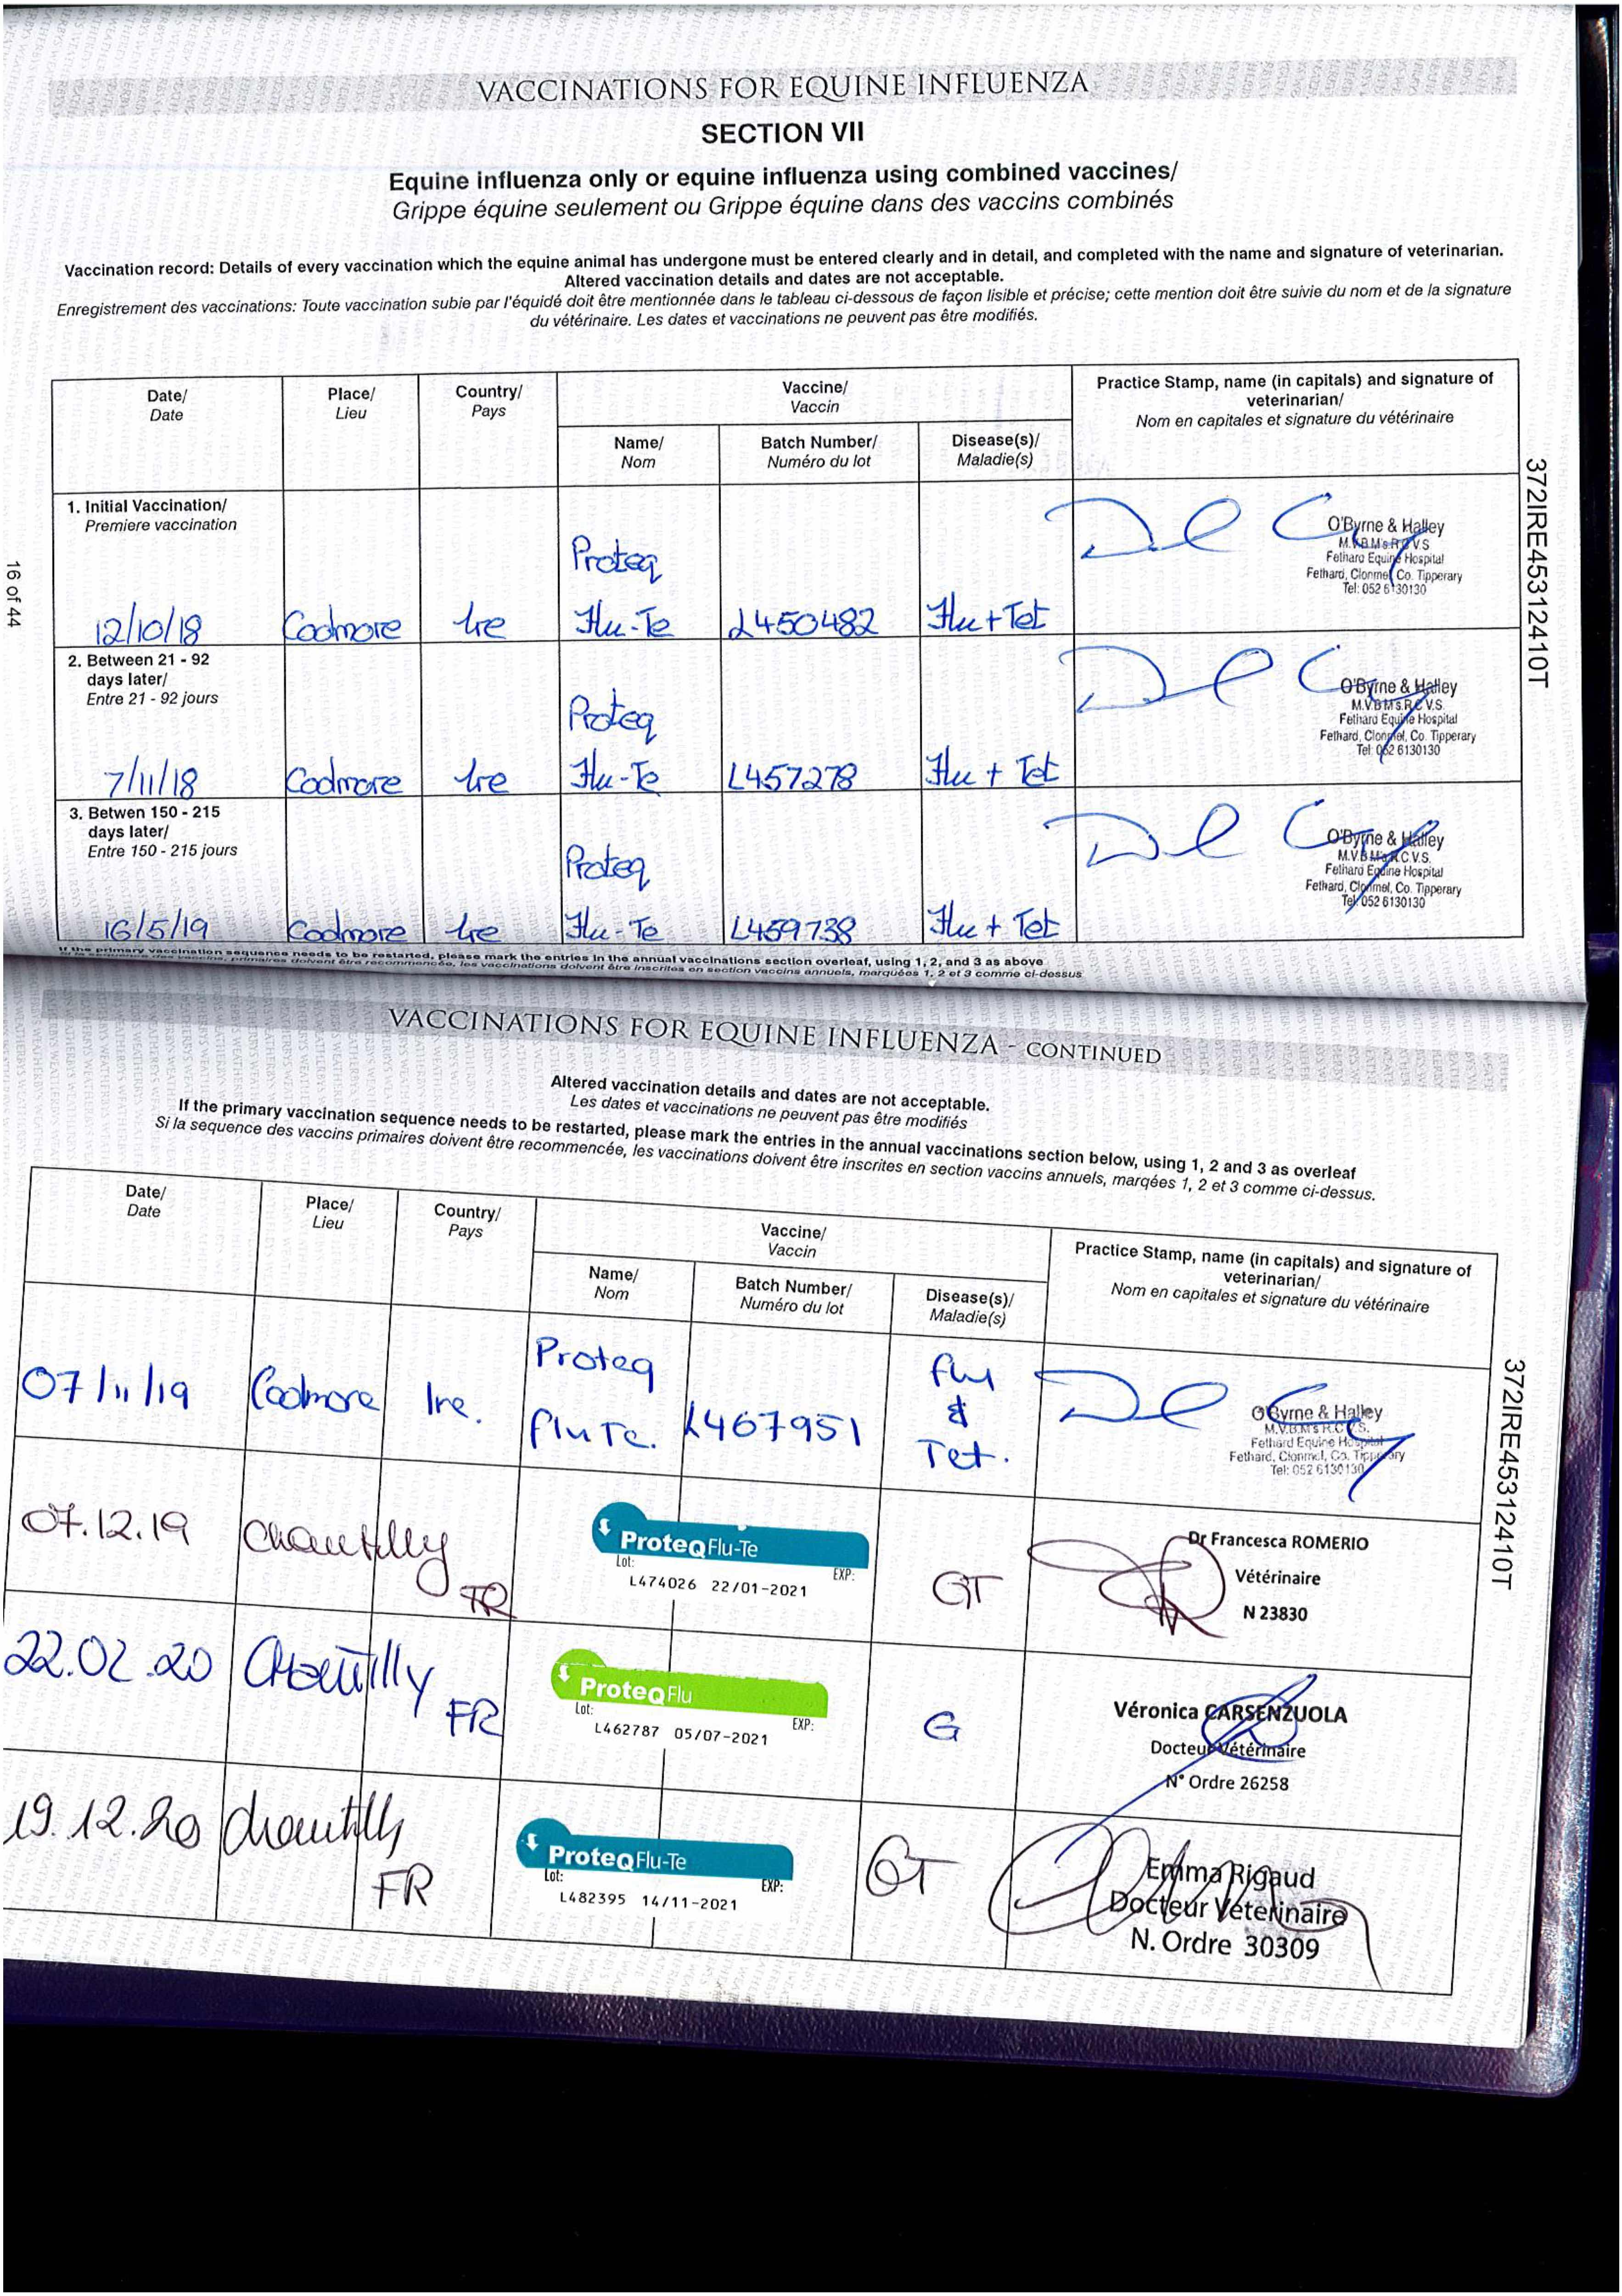 VACCINATIONS FOR EQUINE INFLUENZA
SECTION VII
Equine influenza only or equine influenza using combined vaccines/
Grippe équine seulement ou Grippe équine dans des vaccins combinés
Vaccination record: Details of every vaccination which the equine animal has undergone must be entered clearly and in detail, and completed with the name and signature of veterinarian.
Altered vaccination details and dates are not acceptable.
Enregistrement des vaccinations: Toute vaccination subie par l'équidé doit être mentionnée dans le tableau ci-dessous de façon lisible et précise; cette mention doit être suivie du nom et de la signature
du vétérinaire. Les dates et vaccinations ne peuvent pas être modifiés.
Date/ Place/ Country/ Vaccine/ Practice Stamp, name (in capitals) and signature of
Date Lieu Pays Vaccin veterinarian/
Nom en capitales et signature du vétérinaire
Name/ Batch Number/ Disease(s)/
Nom Numéro du lot Maladie(s)
1. Initial Vaccination/
Premiere vaccination
O'Byrne & Halley
M.V.B.M's R.C.V.S
Fethard Equine Hospital
Fethard, Clonmel, Co. Tipperary
Tel: 052 6130130
Proteq
12/10/18 Coolmore Ire Flu-Te L450482 Flu+Tet
2. Between 21 - 92
days later/
Entre 21 - 92 jours
O'Byrne & Halley
M.V.B.M's.R.C.V.S.
Fethard Equine Hospital
Fethard, Clonmel, Co. Tipperary
Tel: 052 6130130
Proteq
7/11/18 Coolmore Ire Flu-Te L457278 Flu + Tet
3. Betwen 150 - 215
days later/
Entre 150 - 215 jours
O'Byrne & Halley
M.V.B.M's R.C.V.S.
Fethard Equine Hospital
Fethard, Clonmel, Co. Tipperary
Tel: 052 6130130
Proteq
16/5/19 Coolmore Ire Flu-Te L459738 Flu + Tet
If the primary vaccination sequence needs to be restarted, please mark the entries in the annual vaccinations section overleaf, using 1, 2, and 3 as above
primaires doivent être recommencée, les vaccinations doivent être inscrites en section vaccins annuels, marquées 1, 2 et 3 comme ci-dessus
16 of 44
372IRE45312410T
VACCINATIONS FOR EQUINE INFLUENZA - CONTINUED
Altered vaccination details and dates are not acceptable.
Les dates et vaccinations ne peuvent pas être modifiés
If the primary vaccination sequence needs to be restarted, please mark the entries in the annual vaccinations section below, using 1, 2 and 3 as overleaf
Si la sequence des vaccins primaires doivent être recommencée, les vaccinations doivent être inscrites en section vaccins annuels, marqées 1, 2 et 3 comme ci-dessus.
Date/ Place/ Country/ Vaccine/ Practice Stamp, name (in capitals) and signature of
Date Lieu Pays Vaccin veterinarian/
Nom en capitales et signature du vétérinaire
Name/ Batch Number/ Disease(s)/
Nom Numéro du lot Maladie(s)
07/11/19 Coolmore Ire. Proteq Flu Te. L467951 flu & Tet.
O'Byrne & Halley
M.V.B.M's R.C.V.S.
Fethard Equine Hospital
Fethard, Clonmel, Co. Tipperary
Tel: 052 6130130
07.12.19 Chantilly FR
ProteqFlu-Te
Lot: EXP:
L474026 22/01-2021
GT
Dr Francesca ROMERIO
Vétérinaire
N 23830
22.02.20 Chantilly FR
ProteqFlu
Lot: EXP:
L462787 05/07-2021
G
Véronica CARSENZUOLA
Docteur Vétérinaire
N° Ordre 26258
19.12.20 Chantilly FR
ProteqFlu-Te
Lot: EXP:
L482395 14/11-2021
GT
Emma Rigaud
Docteur Vétérinaire
N. Ordre 30309
372IRE45312410T